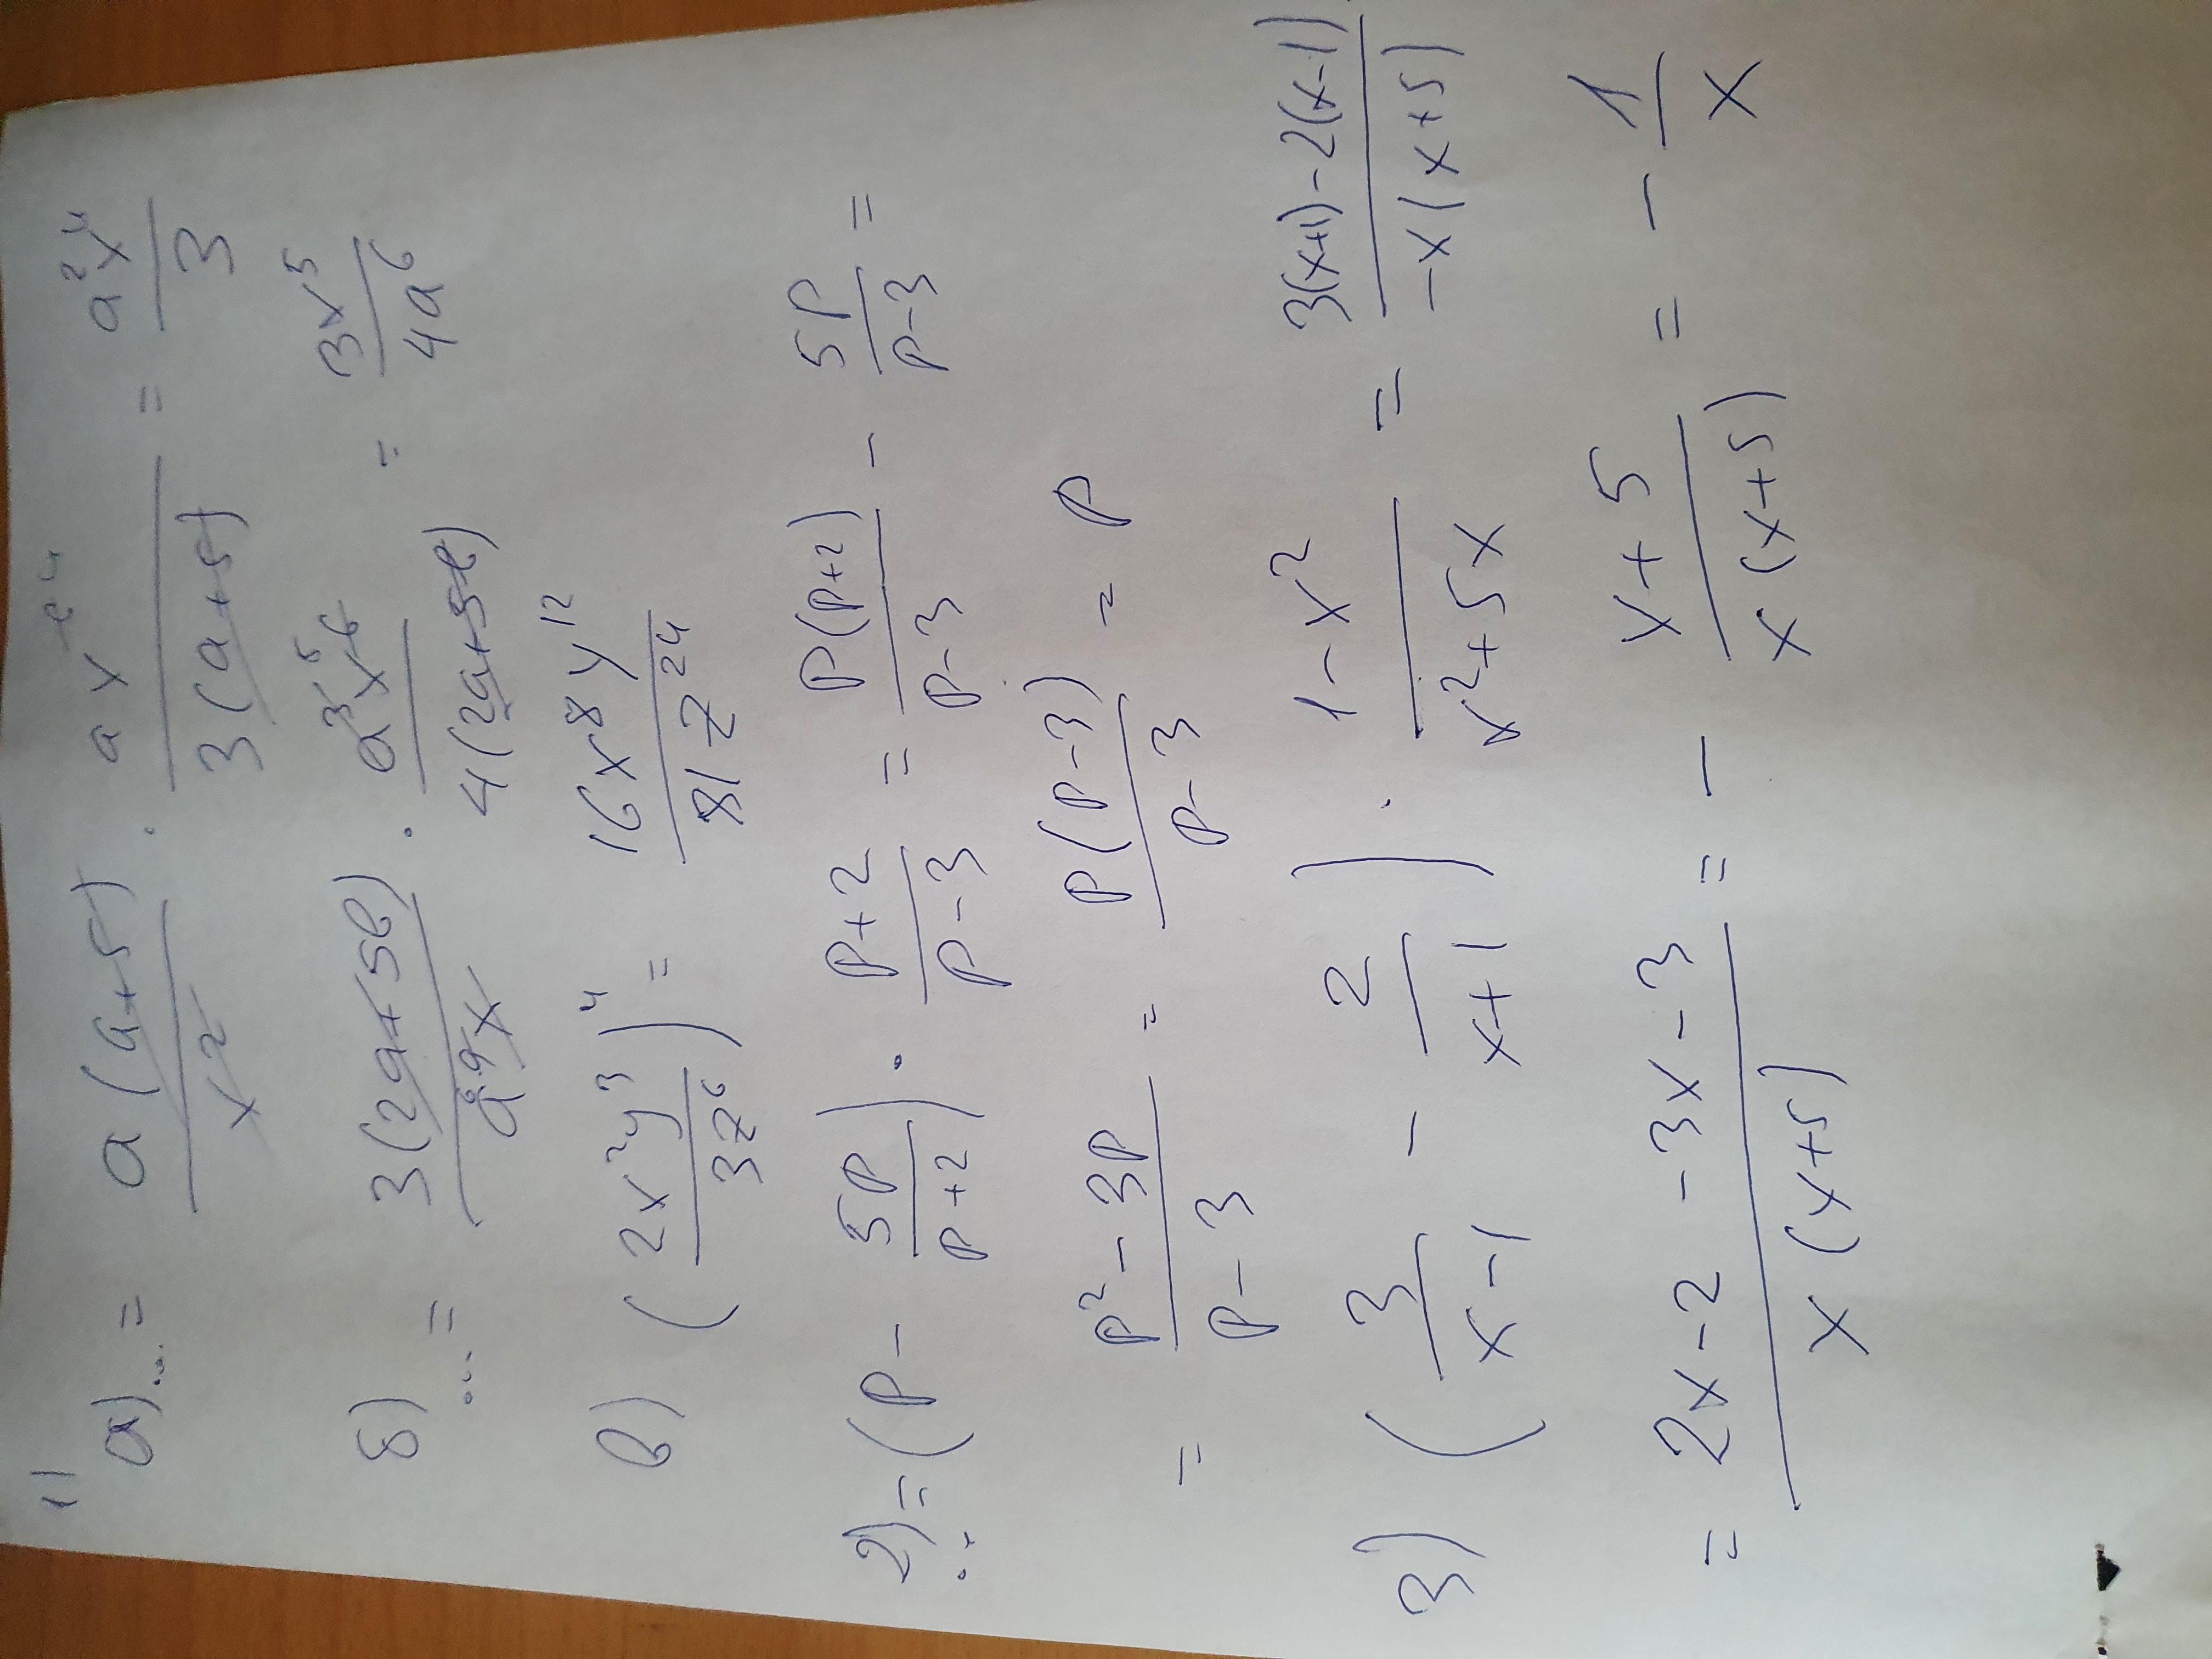 1)
а) ...= a(a+5)/x² · ax⁶ ⁴/3(a+5) = a²x⁴/3
б) ...= 3(2a+5b)/a⁹x · a³x⁶ ⁵/4(2a+5b) = 3x⁵/4a⁶
в) (2x²y³/3z⁶)⁴ = 16x⁸y¹²/81z²⁴
2) ...= (p - 5p/p+2) · p+2/p-3 = p(p+2)/p-3 - 5p/p-3 =
= p²-3p/p-3 = p(p-3)/p-3 = p
3) (3/x-1 - 2/x+1) · 1-x²/x²+5x = 3(x+1)-2(x-1)/-x(x+5)
= 2x-2-3x-3/x(x+5) = - x+5/x(x+5) = - 1/x